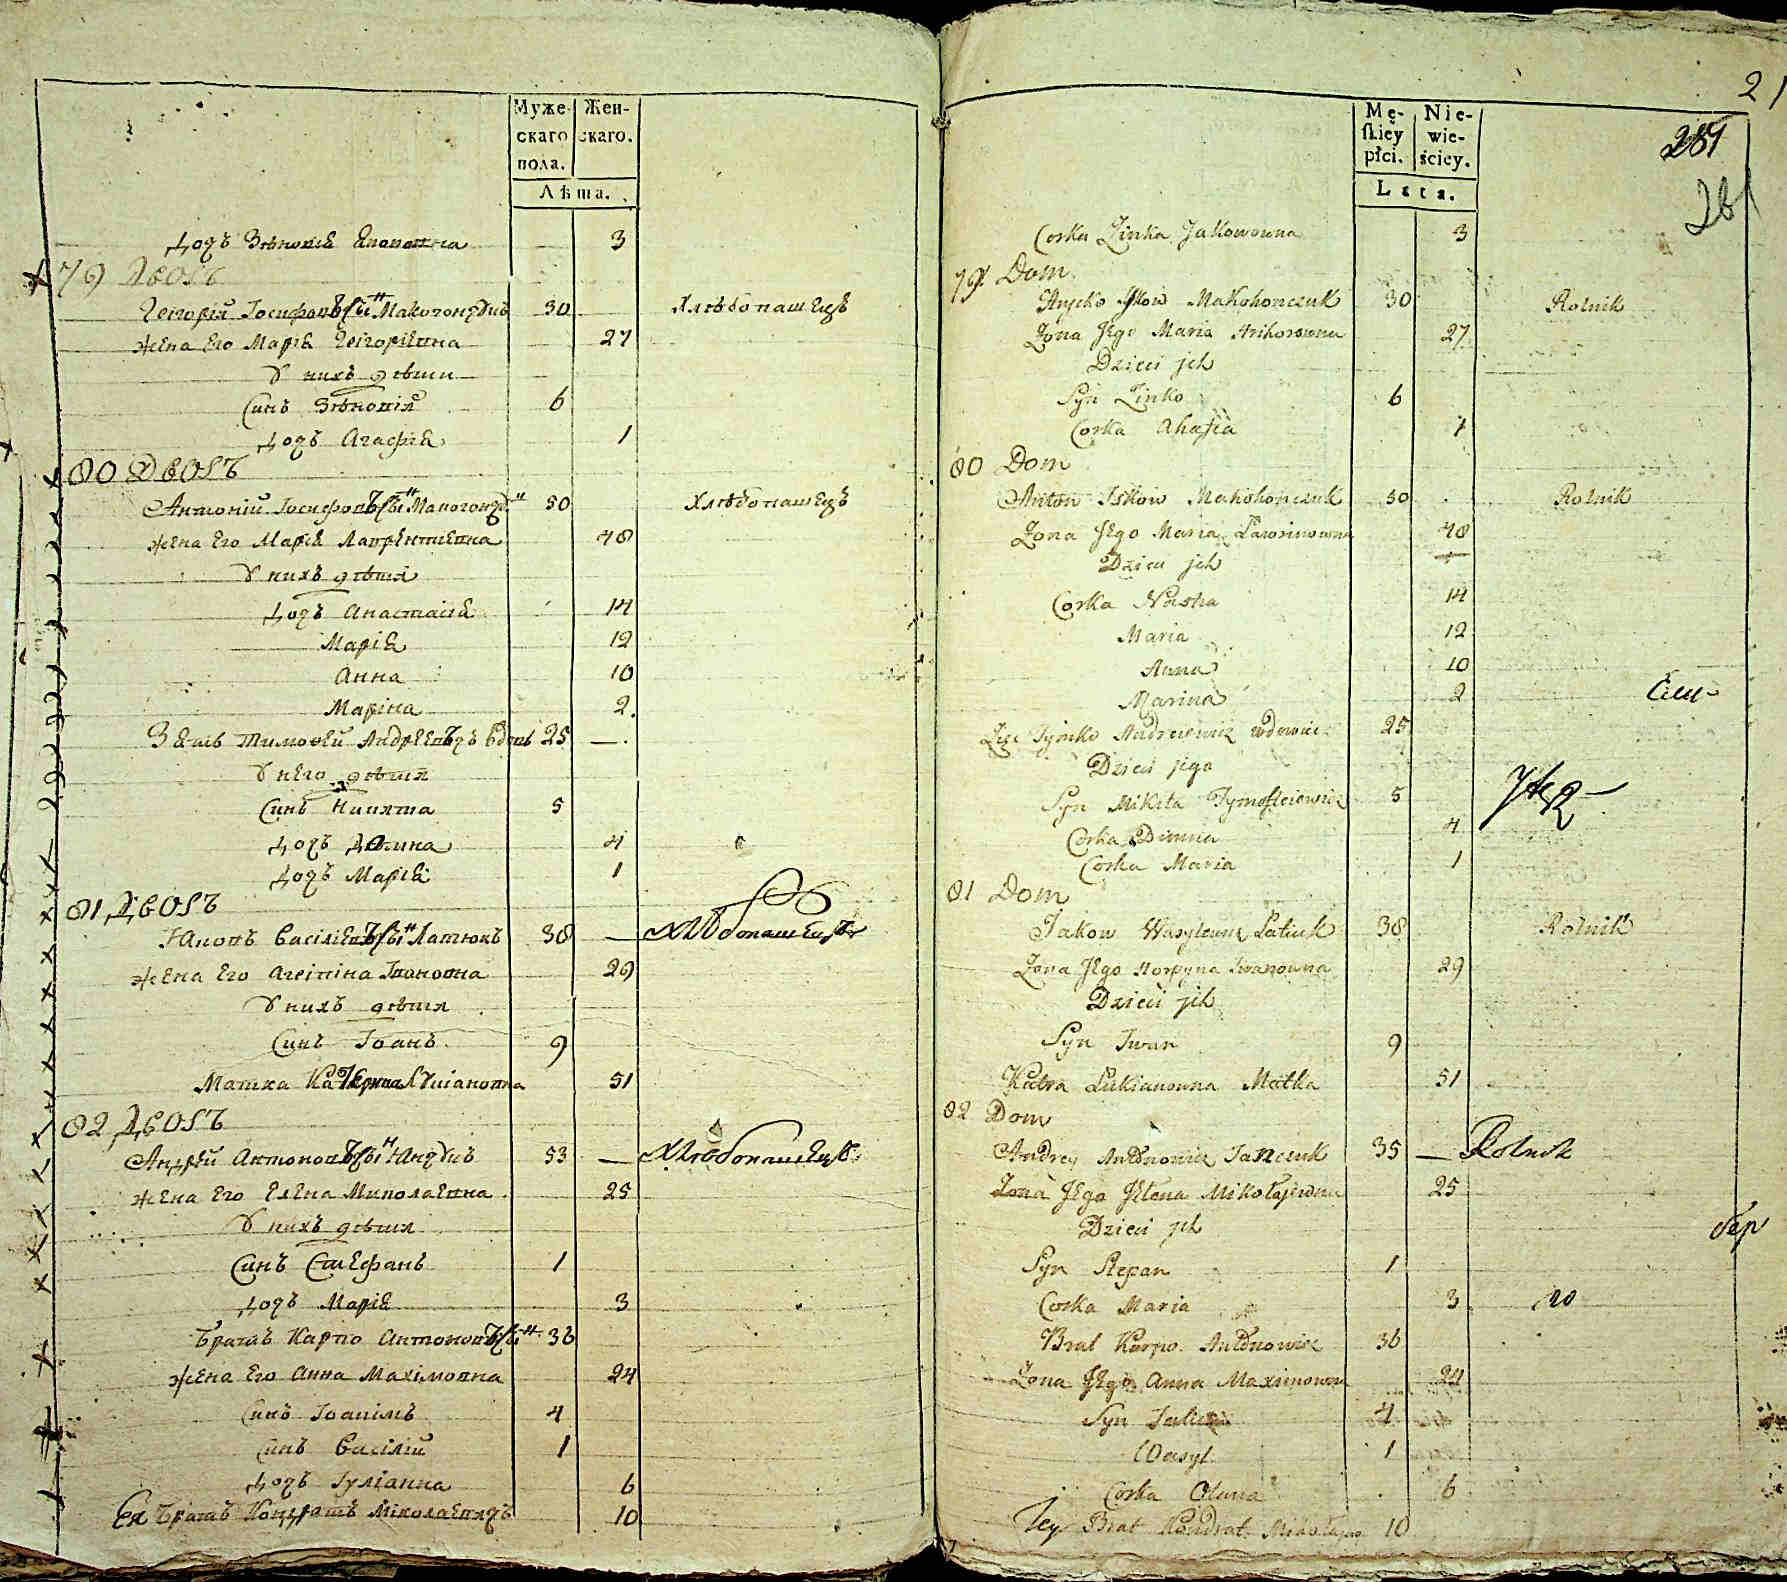 Муже-
скаго
пола.
Жен-
скаго.
Лѣта.
Дочь Зѣновія Якововна 3
79 Дворъ
Георгій Іосифовъ Сынъ Макогончукъ 30 Хлѣбопашецъ
Жена Его Марія Георгіевна 27
У нихъ дѣти
Синъ Зѣновій 6
Дочь Агафія 1
80 Дворъ
Антоній Іосифовъ Сынъ Макогонч 50 Хлѣбопашецъ
Жена Его Марія Лаврентіевна 48
У нихъ дѣтя
Дочь Анастасія 14
Марія 12
Анна 10
Марина 2
Зять Тимофей Андреевичъ Вдовъ 25
У него дѣтя
Синъ Никита 5
Дочь Домна 4
Дочь Марія 1
81 Дворъ
Яковъ Василіевъ Сынъ Латюкъ 38 Хлѣбопашецъ
Жена Его Агрипина Іванова 29
У нихъ дѣтя
Синъ Іоанъ 9
Матка Катерина Лукіановна 51
82 Дворъ
Андрей Антоновъ Сынъ Янчукъ 53 Хлѣбопашецъ
Жена Его Елена Миколаевна 25
У нихъ дѣтя
Синъ Стефанъ 1
Дочь Марія 3
Братъ Карпо Антоновъ Сынъ 36
Жена Его Анна Махімовна 24
Синъ Іоакимъ 4
Синъ Василій 1
Дочь Іуліанна 6
Ея Братъ Кондратъ Міколаевичъ 10
21
Mę-
skiey
płci.
Nie-
wie-
ściey.
Lata.
281
Corka Zinka Jakowowna 3
79 Dom
Hryćko Jśkow Makohonczuk 30 Rolnik
Zona Jego Maria Hrihorowna 27
Dzieci jch
Syn Zinko 6
Corka Ahafia 1
80 Dom
Anton Iśkow Makohonczuk 50 Rolnik
Zona Jego Maria Ławrinowna 48
Dzieci jch
Corka Nastia 14
Maria 12
Anna 10
Marina 2
Zięć Tymko Andreiewicz wdowiec 25
Dzieci jego
Syn Mikita Tymofieiowicz 5
Corka Domna 4
Corka Maria 1
81 Dom
Jakow Wasylewicz Łatiuk 38 Rolnik
Zona Jego Horpyna Iwanowna 29
Dzieci jch
Syn Iwan 9
Katra Łukianowna Matka 51
82 Dom
Andrey Antonowicz Janczuk 35 Rolnik
Zona Jego Jełena Mikołajewna 25
Dzieci jch
Syn Stepan 1
Corka Maria 3
Brat Karpo Antonowicz 36
Zona Jego Anna Maximowna 24
Syn Jakim 4
Wasyl 1
Corka Olana 6
Jey Brat Kondrat Mikołajow 10